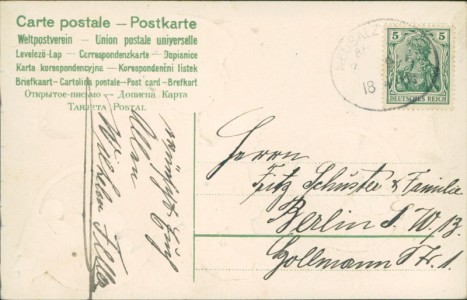 Carte postale — Postkarte
Weltpostverein — Union postale universelle
Levelező-Lap — Correspondenzkarte — Dopisnice
Karta korespondencyjna — Korespondenční lístek
Briefkaart - Cartolina postale - Post card - Brefkort
Открытое письмо — Дописна Карта
Tarjeta Postal
5 5
DEUTSCHES REICH
NEUSALZ
18
Herrn
Fritz Schuster & Familie
Berlin S. W. 13.
Hollmann Str. 1
Wilhelm